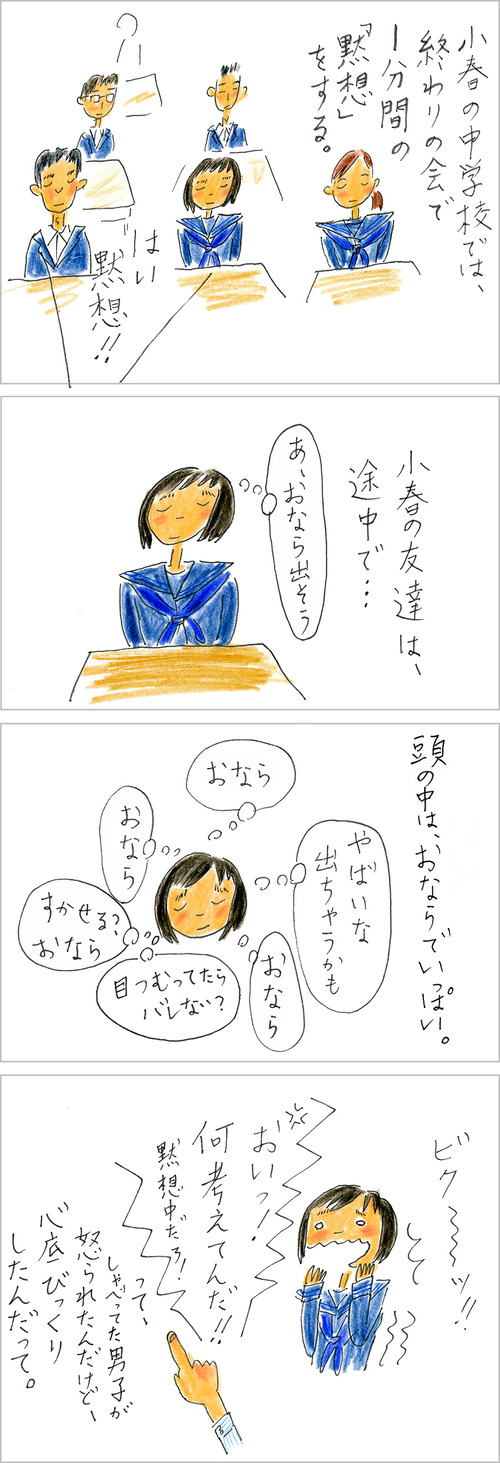 小春の中学校では、
終わりの会で
一分間の
「黙想」
をする。
はい
黙想!!
小春の友達は、
途中で…
あ、おなら出そう
頭の中は、おならでいっぱい。
やばいな
出ちゃうかも
おなら
おなら
おなら
すかせる?
おなら
目つむってたら
バレない?
ビク〜〜ッ!!
おいっ!
何考えてんだ!!
黙想中だろ!
って、
しゃべってた男子が
怒られたんだけど、
心底びっくり
したんだって。